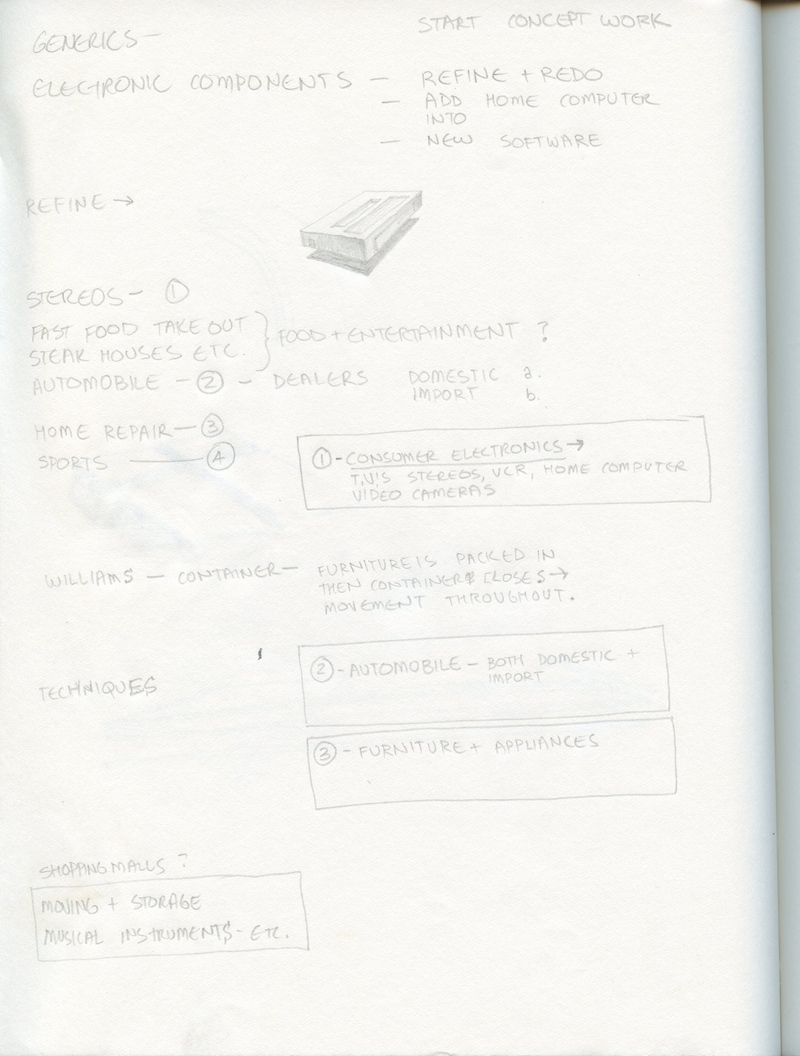 START CONCEPT WORK
GENERICS-
ELECTRONIC COMPONENTS - REFINE + REDO
- ADD HOME COMPUTER
INTO
- NEW SOFTWARE
REFINE →
STEREOS - ①
FAST FOOD TAKE OUT
STEAK HOUSES ETC.
} FOOD + ENTERTAINMENT ?
AUTOMOBILE - ② - DEALERS DOMESTIC a.
IMPORT b.
HOME REPAIR - ③
SPORTS - ④
① - CONSUMER ELECTRONICS →
T.V.'S STEREOS, VCR, HOME COMPUTER
VIDEO CAMERAS
WILLIAMS - CONTAINER - FURNITURE IS PACKED IN
THEN CONTAINER CLOSES →
MOVEMENT THROUGHOUT.
② - AUTOMOBILE - BOTH DOMESTIC +
IMPORT
TECHNIQUES
③ - FURNITURE + APPLIANCES
SHOPPING MALLS ?
MOVING + STORAGE
MUSICAL INSTRUMENTS - ETC.